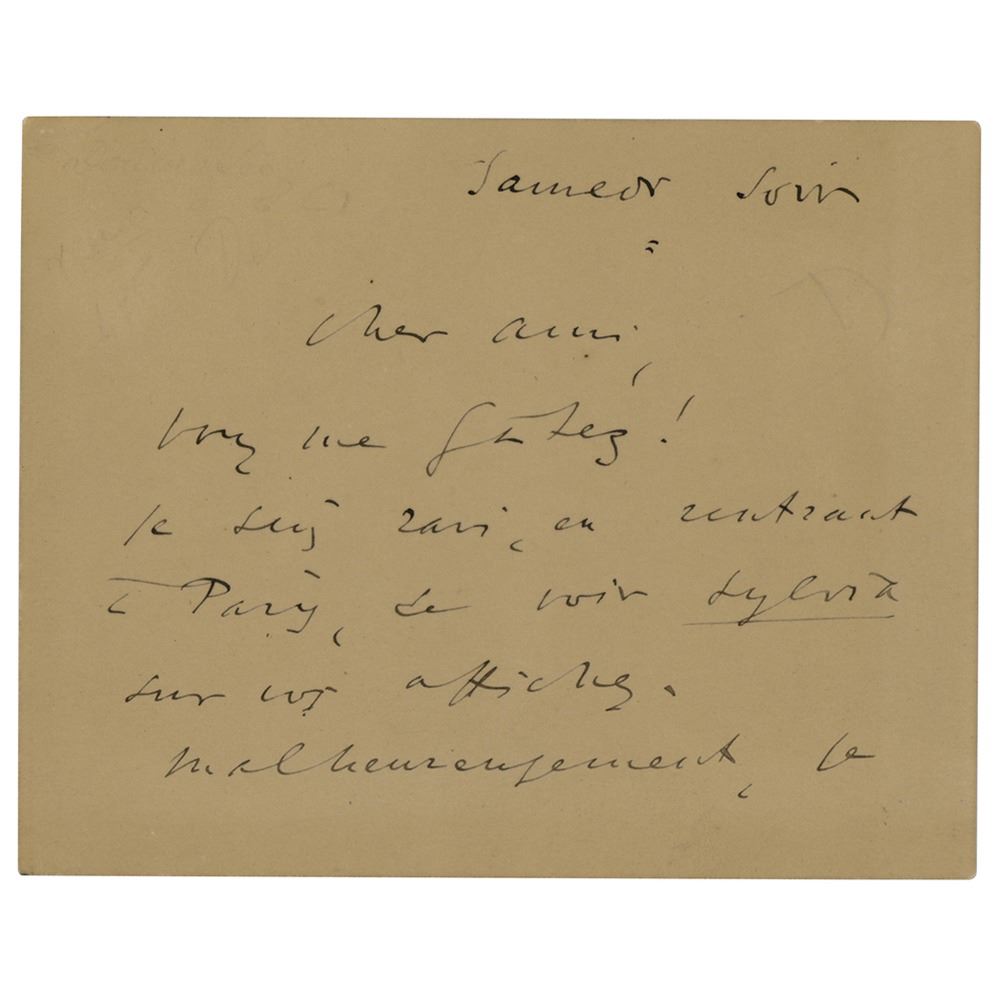 Samedi soir
=
Cher ami,
vous me gâtez !
Je suis ravi, en rentrant
à Paris, de voir Sylvia
sur vos affiches.
Malheureusement, je